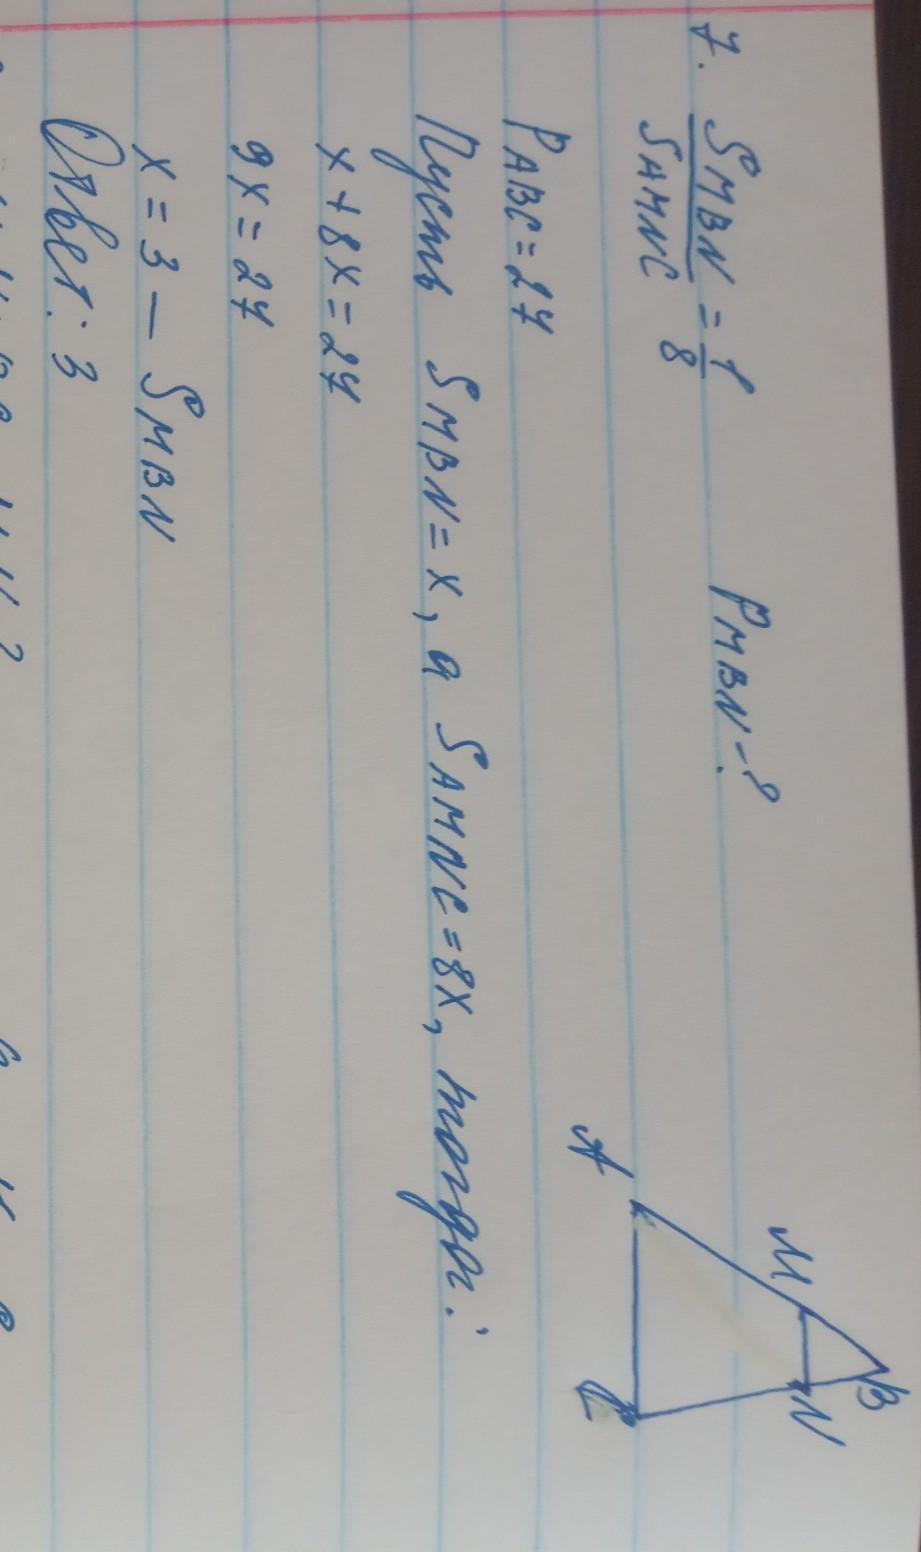 7. SMBN / SAMNC = 1/8 PMBN-?
PABC = 27
Пусть SMBN = x, а SAMNC = 8x, тогда:
x + 8x = 27
9x = 27
x = 3 — SMBN
Ответ: 3
B
M
N
A
C